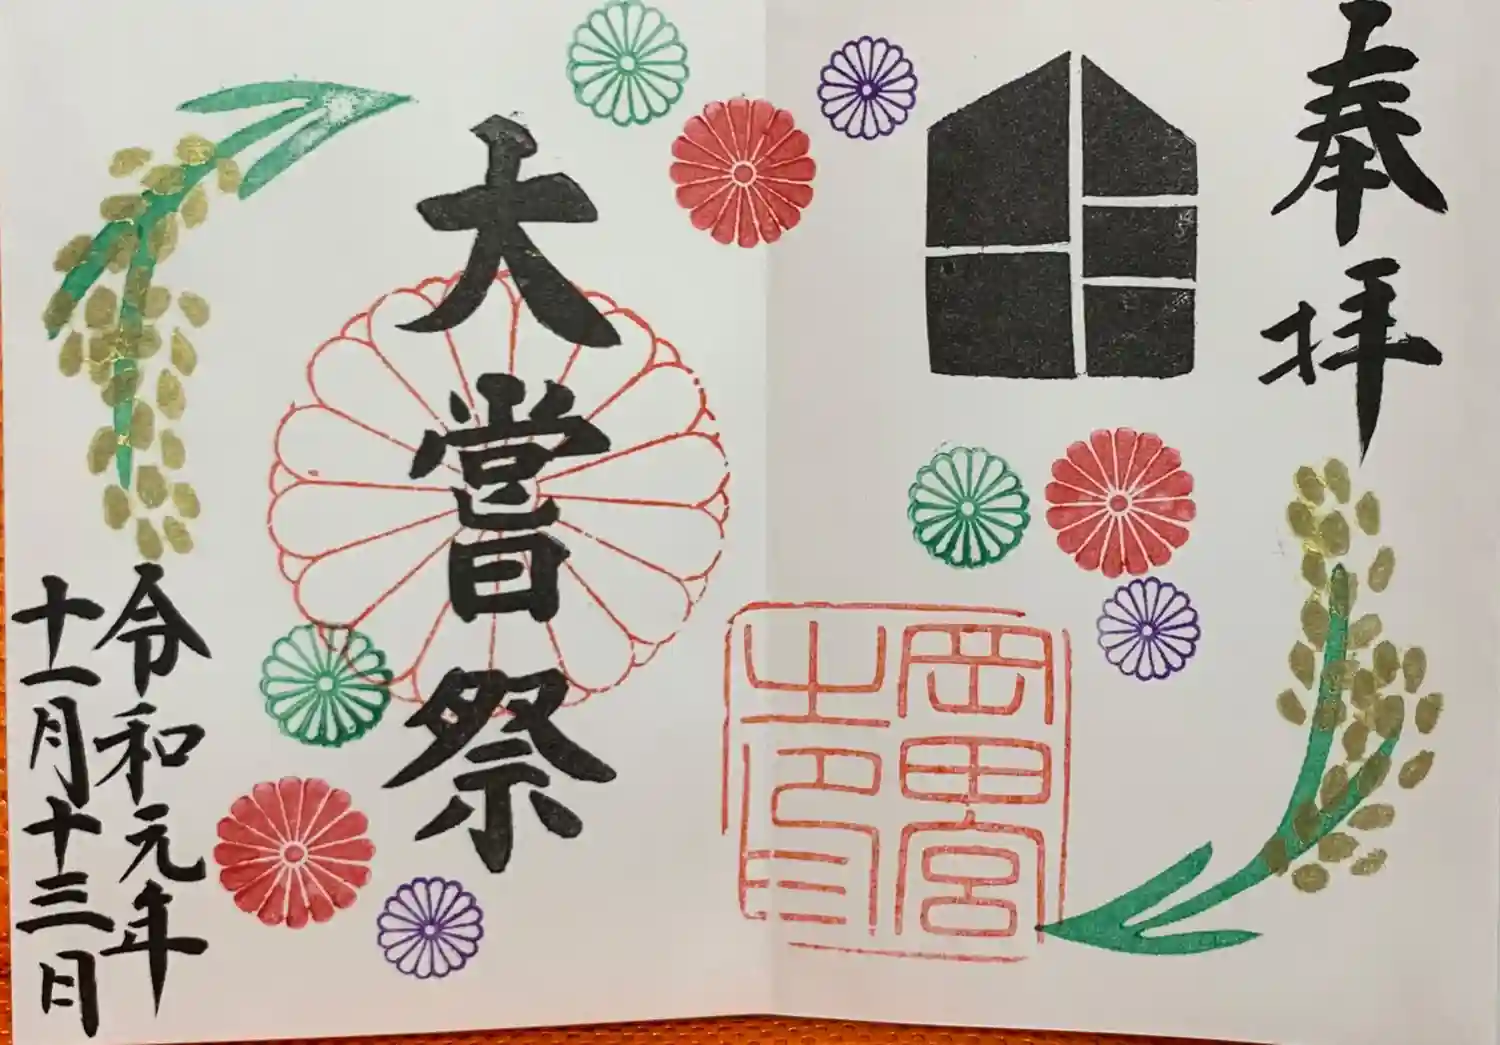 奉拝
岡田宮
之印
大嘗祭
令和元年
十一月十三日